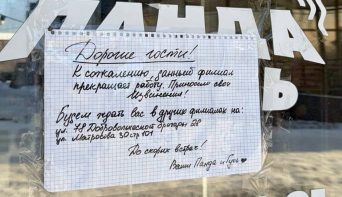 ПАНДА"
Ь
Дорогие гости!
К сожалению, данный филиал
прекращает работу. Приносим свои
извинения!
Будем ждать вас в других филиалах на:
ул. 78 Добровольческой бригады
ул. Матросова 30 стр 101
До скорых встреч!
Ваши Панда и Гусь ♥